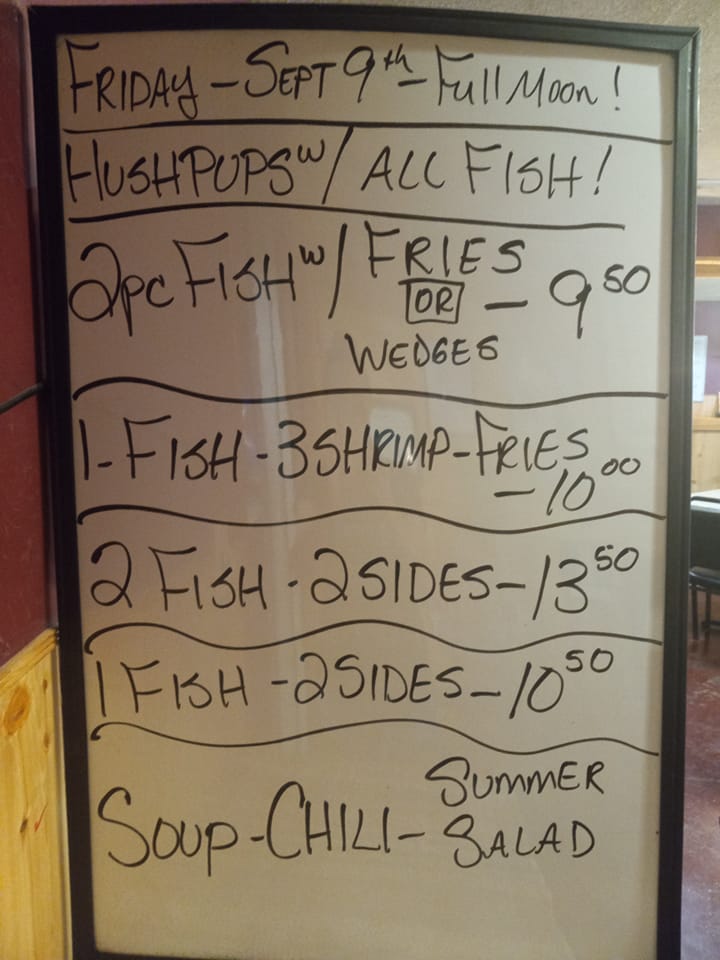 FRIDAY - SEPT 9th - Full Moon!
HUSHPUPS w/ ALL FISH!
2pc FISH w/ FRIES
OR - 9 50
WEDGES
1 - FISH - 3 SHRIMP - FRIES
- 10 00
2 FISH - 2 SIDES - 13 50
1 FISH - 2 SIDES - 10 50
SOUP - CHILI - SUMMER
SALAD